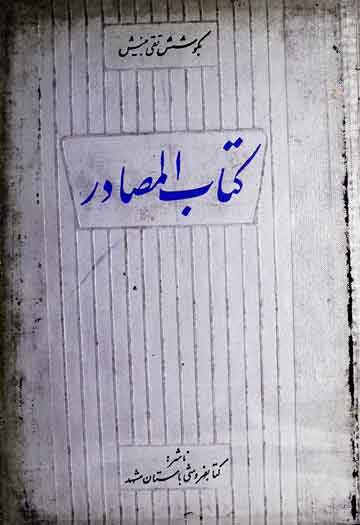 بکوشش تقی بینش
کتاب المصادر
ناشر:
کتابفروشی باستان مشهد